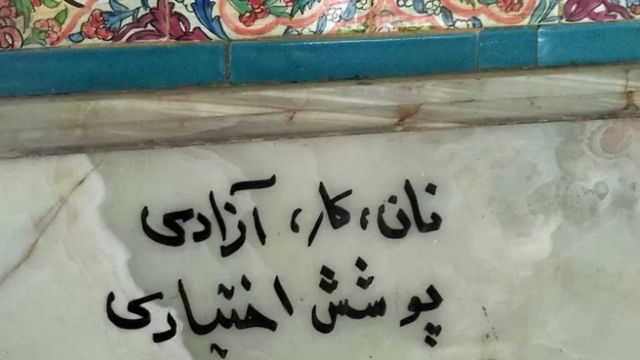 نان، کار، آزادی
پوشش اختیاری